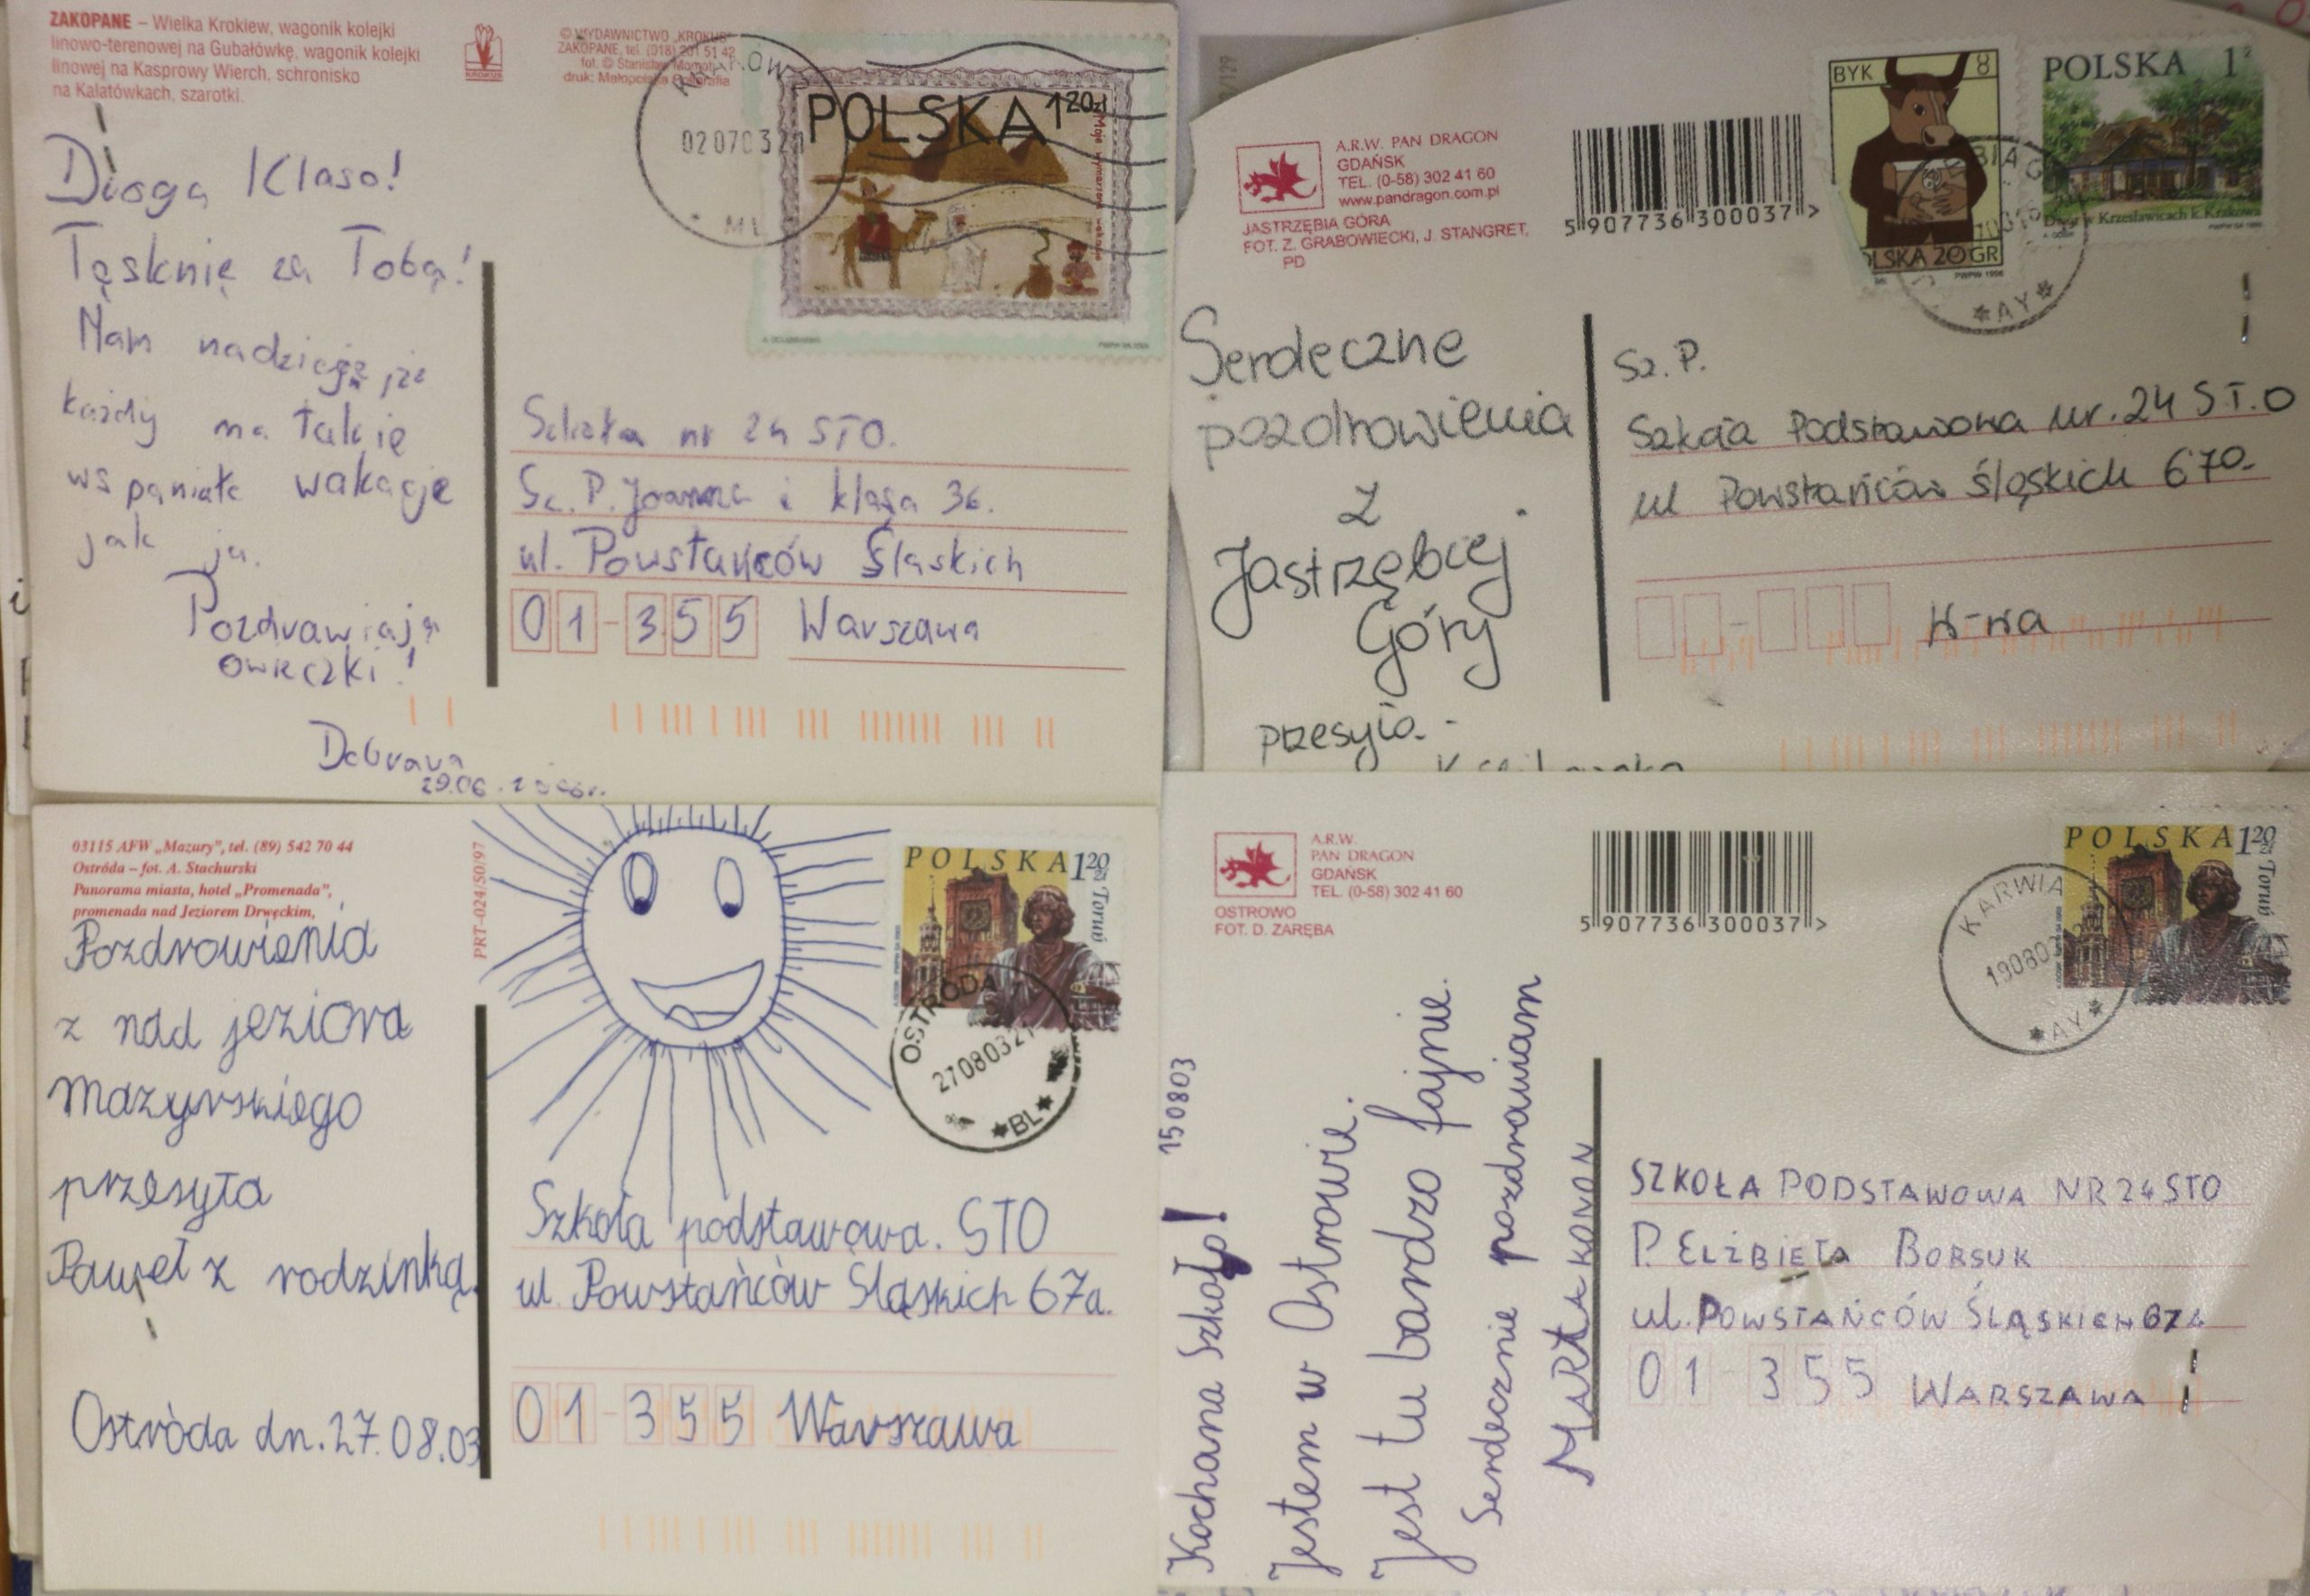 ZAKOPANE – Wielka Krokiew, wagonik kolejki
linowo-terenowej na Gubałówkę, wagonik kolejki
linowej na Kasprowy Wierch, schronisko
na Kalatówkach, szarotki.
KROKUS
© WYDAWNICTWO „KROKUS”
ZAKOPANE, tel. (018) 201 51 42
fot. © Stanisław
druk:
020703
POLSKA 120zł
Droga Klaso!
Tęsknię za Tobą!
Mam nadzieję, że
każdy ma takie
wspaniałe wakacje
jak ja.
Pozdrawiają
owieczki!
29.06.
Szkoła nr 24 STO.
Sz. P. Joanna i klasa
ul. Powstańców Śląskich
01-355 Warszawa
A.R.W. PAN DRAGON
GDAŃSK
TEL. (0-58) 302 41 60
www.pandragon.com.pl
JASTRZĘBIA GÓRA
FOT. Z. GRABOWIECKI, J. STANGRET,
PD
5 907736 300037 >
BYK 8
POLSKA 20 GR
PWPW 1996
POLSKA 1
Dwór w Krzesławicach k. Krakowa
*AY*
Serdeczne
pozdrowienia
z
Jastrzębiej
Góry
przesyła -
Sz. P.
Szkoła Podstawowa nr. 24 S T.O
ul Powstańców Śląskich 67a
W-wa
03115 AFW „Mazury”, tel. (89) 542 70 44
Ostróda – fot. A. Stachurski
Panorama miasta, hotel „Promenada”,
promenada nad Jeziorem Drwęckim,
PRT-024/S0/97
POLSKA 120zł
Toruń
OSTRÓDA
27080321
*BL*
Pozdrowienia
z nad jeziora
Mazurskiego
przesyła
Paweł z rodzinką.
Ostróda dn. 27.08.03
Szkoła podstawowa. STO
ul. Powstańców Śląskich 67a.
01-355 Warszawa
A.R.W.
PAN DRAGON
GDAŃSK
TEL. (0-58) 302 41 60
OSTROWO
FOT. D. ZARĘBA
5 907736 300037 >
POLSKA 120zł
Toruń
KARWIA
190803
*AY*
150803
Kochana Szkoło!
Jestem w Ostrowie.
Jest tu bardzo fajnie.
Serdecznie pozdrawiam
MARTA KONON
SZKOŁA PODSTAWOWA NR 24 STO
P. ELŻBIETA BORSUK
ul. POWSTAŃCÓW ŚLĄSKICH 67A
01-355 WARSZAWA